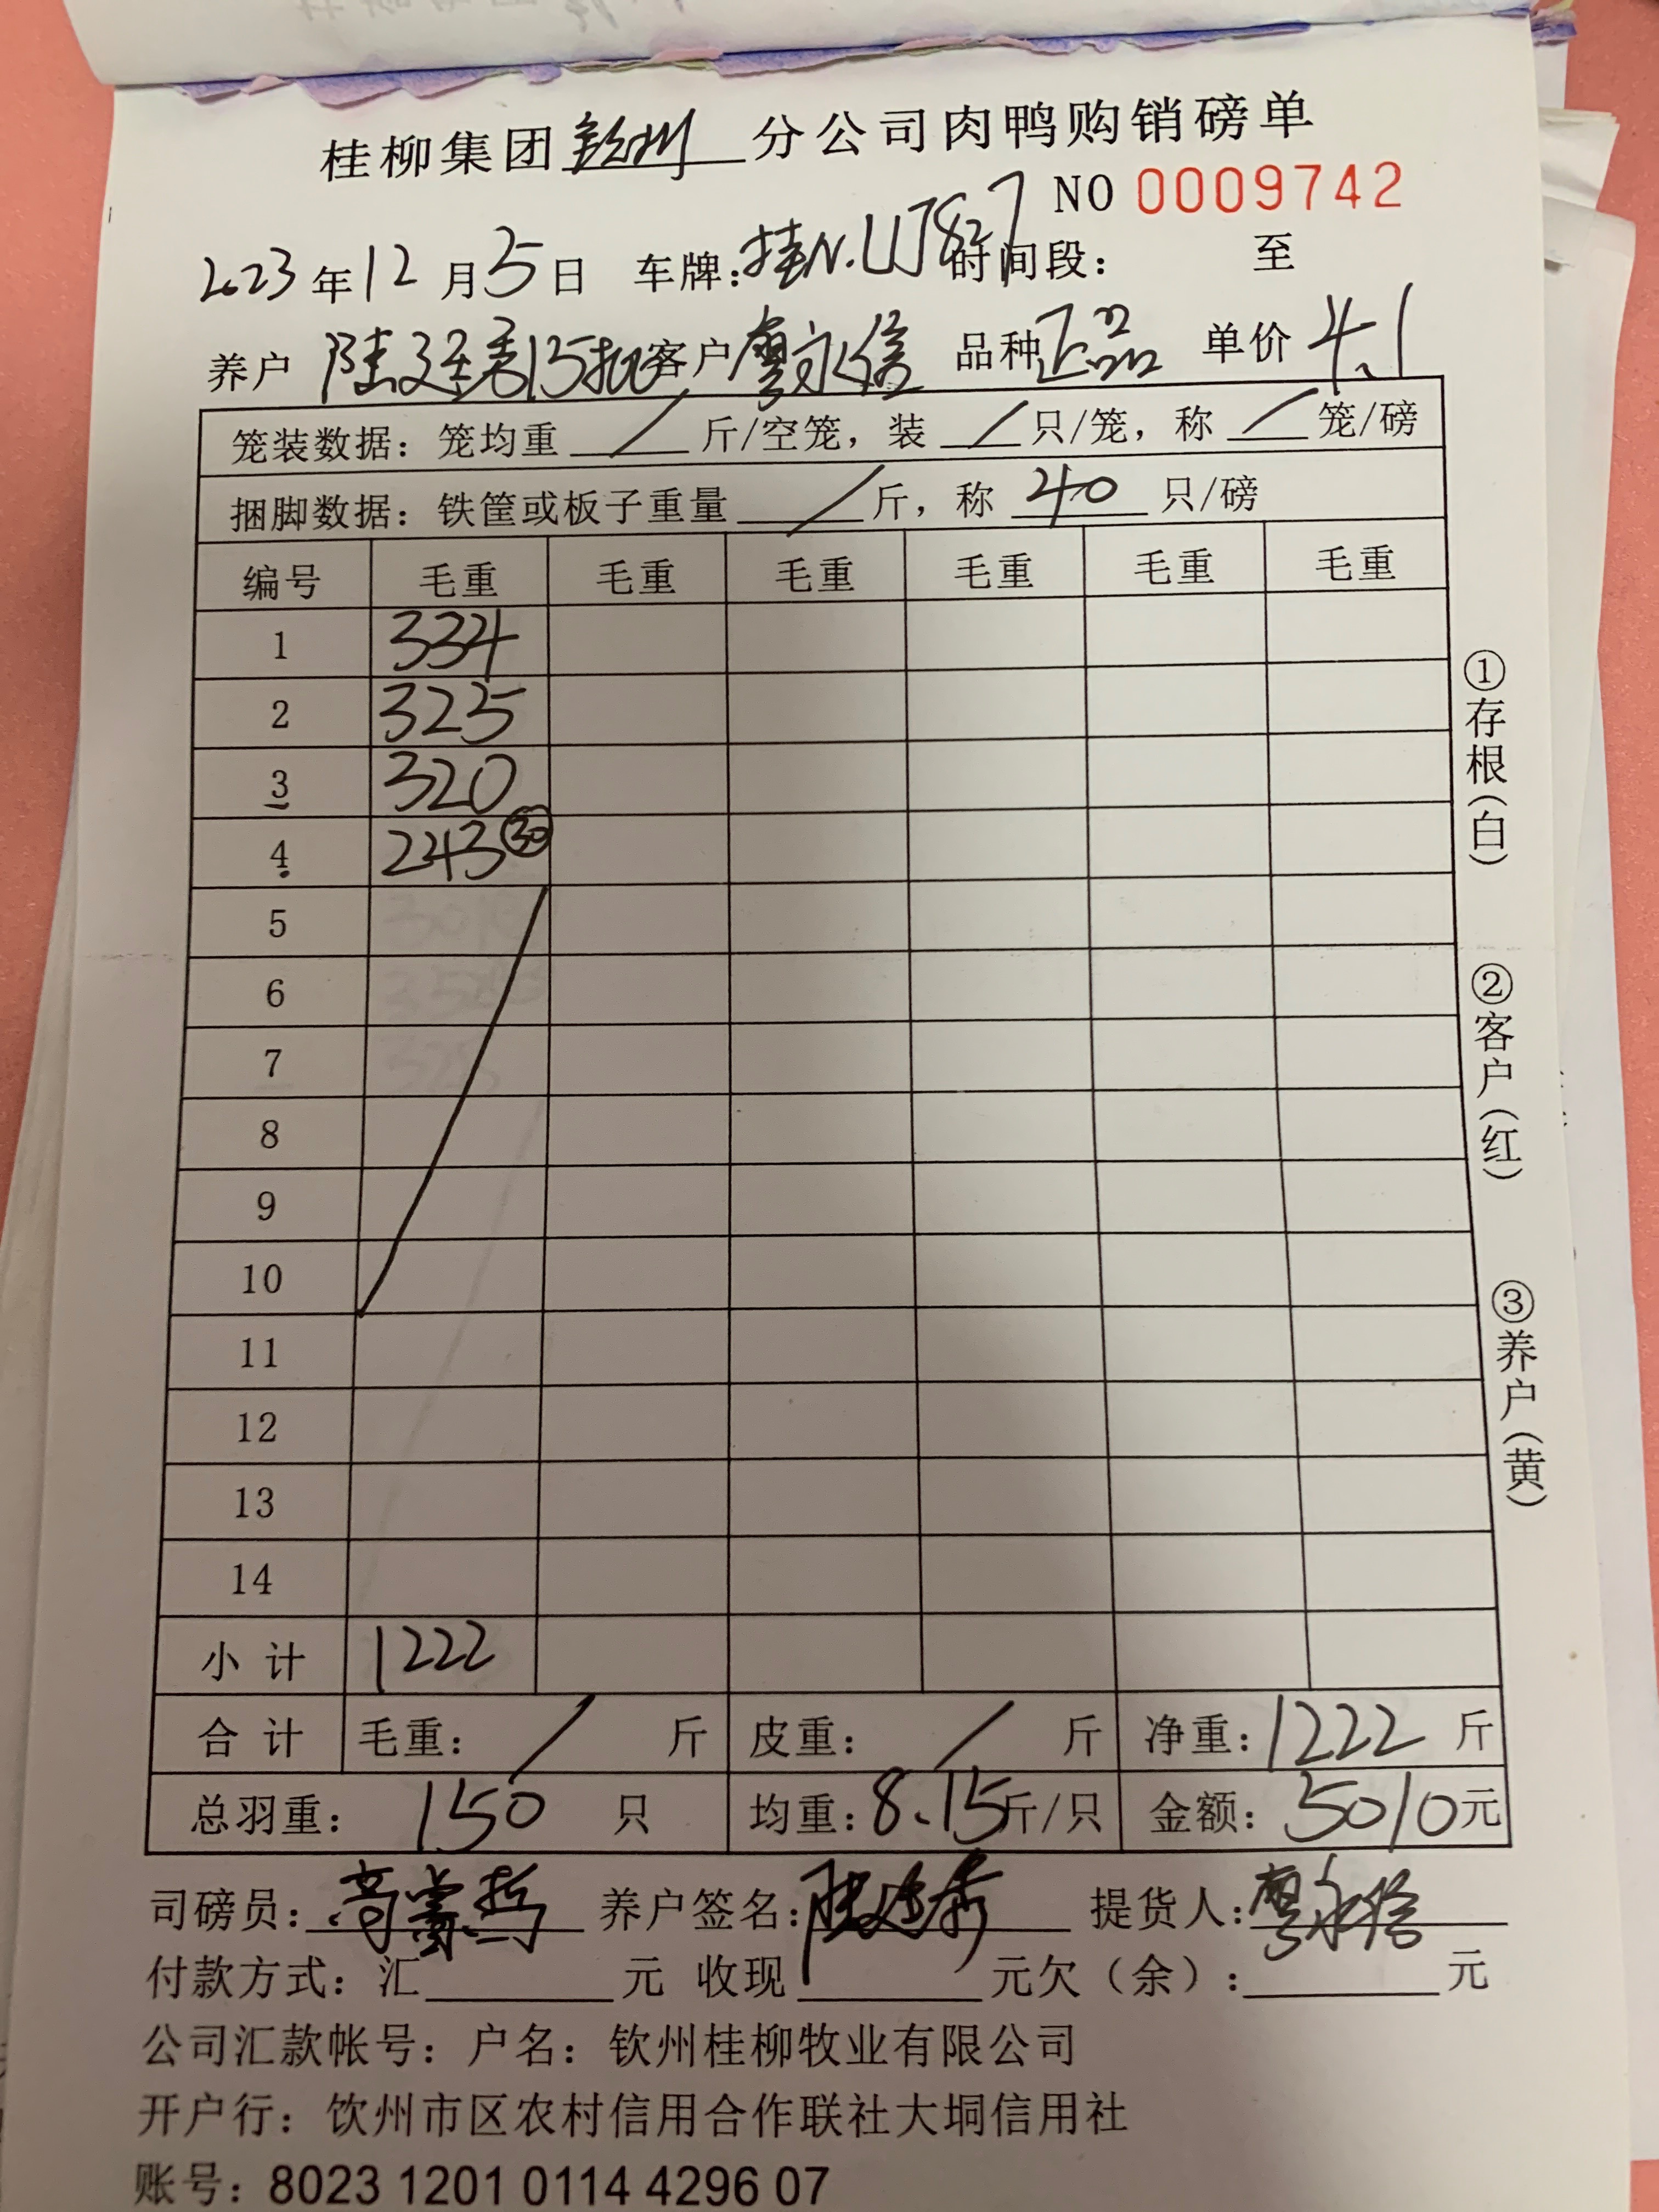 桂柳集团钦州分公司肉鸭购销磅单
NO 0009742
2023年12月5日 车牌:桂N.UJ827 时间段: 至
养户 陆廷秀15批 客户 廖永信 品种 正品 单价 4.1
笼装数据: 笼均重 / 斤/空笼, 装 / 只/笼, 称 / 笼/磅
捆脚数据: 铁筐或板子重量 / 斤, 称 40 只/磅
编号 毛重 毛重 毛重 毛重 毛重 毛重
1 334
2 325
3 320
4 243 ㉚
5
6
7
8
9
10
11
12
13
14
小计 1222
合计 毛重: / 斤 皮重: / 斤 净重: 1222 斤
总羽重: 150 只 均重: 8.15 斤/只 金额: 5010 元
司磅员: 养户签名: 提货人: 廖永信
付款方式: 汇 元 收现 元欠(余): 元
公司汇款帐号: 户名: 钦州桂柳牧业有限公司
开户行: 钦州市区农村信用合作联社大垌信用社
账号: 8023 1201 0114 4296 07
①存根(白)
②客户(红)
③养户(黄)